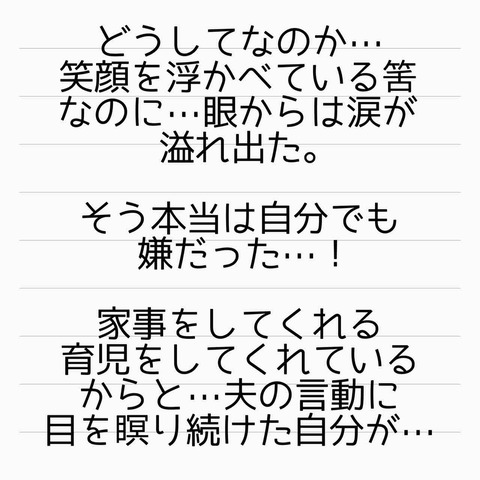 どうしてなのか…
笑顔を浮かべている筈
なのに…眼からは涙が
溢れ出た。
そう本当は自分でも
嫌だった…！
家事をしてくれる
育児をしてくれている
からと…夫の言動に
目を瞑り続けた自分が…